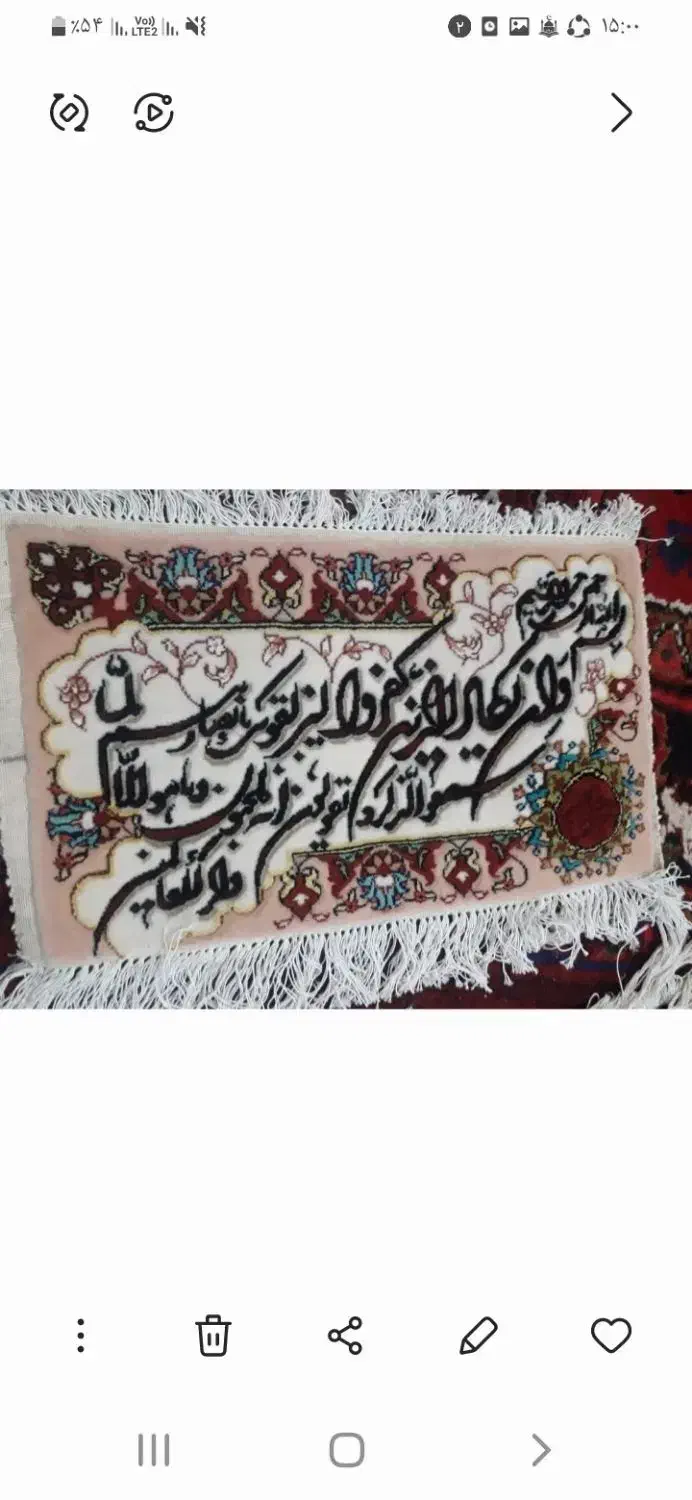 ٪۵۴ Vo)) LTE2 ۲ ۱۵:۰۰
بسم الله الرحمن الرحیم
وان یکاد الذین کفروا لیزلقونک بابصارهم لما
سمعوا الذکر و یقولون انه لمجنون وما هو الا
ذکر للعالمین